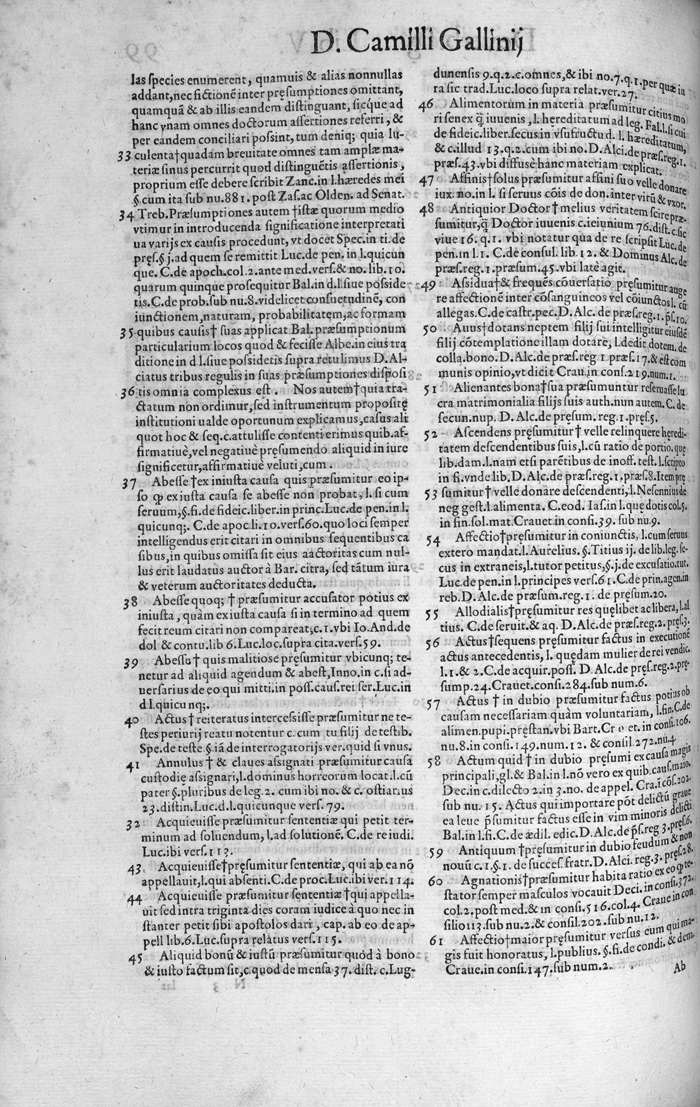 D. Camilli Gallinij
las species enumerent, quamuis & alias nonnullas
addant, nec fictionē inter pręsumptiones omittant,
quamquā & ab illis eandem distinguant, sicque ad
hanc vnam omnes doctorum assertiones referri, &
per eandem conciliari possint, tum deniq; quia lu-
33 culenta†quadam breuitate omnes tam amplæ ma-
teriæ sinus percurrit quod distinguētis assertionis,
proprium esse debere scribit Zanc. in l. hæredes mei
§. cum ita sub nu. 881. post Zas. ac Olden. ad Senat.
34 Treb. Præsumptiones autem †istæ quorum medio
vtimur in introducenda significatione interpretati
ua varijs ex causis procedunt, vt docet Spec. in ti. de
pręs. §. j. ad quem se remittit Luc. de pen. in l. quicun
que. C. de apoch. col. 2. ante med. vers. & no. lib. 10.
quarum quinque prosequitur Bal. in d. l. siue posside
tis. C. de prob. sub nu. 8. videlicet consuetudinē, con
iunctionem, naturam, probabilitatem, ac formam
35 quibus causis† suas applicat Bal. præsumptionum
particularium locos quod & fecisse Albe. in eius tra
ditione in d. l. siue possidetis supra retulimus D. Al-
ciatus tribus regulis in suas præsumptiones disposi
36 tis omnia complexus est. Nos autem†quia tra-
ctatum non ordimur, sed instrumentum propositę
institutioni ualde oportunum explicamus, casus ali
quot hoc & seq. c. attulisse contenti erimus quib. af-
firmatiuè, vel negatiuè pręsumendo aliquid in iure
significetur, affirmatiuè veluti, cum.
37 Abesse †ex iniusta causa quis præsumitur eo ip-
so qp ex iusta causa se abesse non probat, l. si cum
seruum, §. fi. de fideic. liber. in princ. Luc. de pen. in l.
quicunq;. C. de apoc. li. 10. vers. 60. quo loci semper
intelligendus erit citari in omnibus sequentibus ca
sibus, in quibus omissa sit eius auctoritas cum nul-
lus erit laudatus auctor à Bar. citra, sed tātum iura
& veterum auctoritates deducta.
38 Abesse quoq; † præsumitur accusator potius ex
iniusta, quàm ex iusta causa si in termino ad quem
fecit reum citari non compareat, c. 1. vbi Io. And. de
dol & contu. lib 6. Luc. loc. supra cita. vers. 59.
39 Abesse † quis malitiose pręsumitur vbicunq; te-
netur ad aliquid agendum & abest, Inno. in c. si ad-
uersarius de eo qui mitti. in poss. caus. rei ser. Luc. in
d l. quicunq;.
40 Actus † reiteratus intercessisse præsumitur ne te-
stes periurij reatu notentur c. cum tu filij de testib.
Spe. de teste §. iā de interrogatorijs ver. quid si vnus.
41 Annulus † & claues assignati præsumitur causa
custodie assignari, l. dominus horreorum locat. l. cū
pater §. pluribus de leg. 2. cum ibi no. & c. ostiar. us
23. distin. Luc. d. l. quicunque vers. 79.
32 Acquieuisse præsumitur sententiæ qui petit ter-
minum ad soluendum, l, ad solutionē. C. de re iudi.
Luc. ibi vers. 113.
43 Acquieuisse†pręsumitur sententiæ, qui ab ea nō
appellauit, l. qui absenti. C. de proc. Luc. ibi ver. 114.
44 Acquieuisse præsumitur sententiæ†qui appella-
uit sed intra triginta dies coram iudice à quo nec in
stanter petit sibi apostolos dari, cap. ab eo de ap-
pell lib. 6. Luc. supra relatus vers. 115.
45 Aliquid bonū & iustū præsumitur quòd à bono
& iusto factum sit, c. quod de mensa 37. dist. c. Lug-
dunensis 9. q. 2. c. omnes, & ibi no. 7. q. 1. per quæ iu
ra sic trad. Luc. loco supra relat. ver. 27.
46 Alimentorum in materia præsumitur citius mo
ri senex q̄ iuuenis, l. hereditatum ad leg. Fal. l. si cui
de fideic. liber. secus in vsufructu d. l. hæreditatum,
& c. illud 13. q. 2. cum ibi no. D. Alc. de præs. reg. 1.
præs. 43. vbi diffusè hanc materiam explicat.
47 Affinis†solus præsumitur affini suo velle donare
iux. no. in l. si seruus cōis de don. inter virū & vxor.
48 Antiquior Doctor† melius veritatem scire præ-
sumitur, q̄ Doctor iuuenis c. ieiunium 76. dist. c. sic
viue 16. q. 1. vbi notatur qua de re scripsit Luc. de
pen. in l. 1. C. de consul. lib. 12. & Dominus Alc. de
præs. reg. 1. præsum. 45. vbi latè agit.
49 Assidua† & frequēs cōuersatio pręsumitur auge
re affectionē inter cōsanguineos vel cōiunctos l. cū
allegas. C. de castr. pec. D. Alc. de præs. reg. 1. ps. 10.
50 Auus†dotans neptem filij sui intelligitur eiusdē
filij cōtemplatione illam dotare, l. dedit dotem. de
colla. bono. D. Alc. de præs. reg 1. præs. 17. & est com
munis opinio, vt dicit Crau. in cons. 219. num. 1.
51 Alienantes bona†sua præsumuntur reseruasse lu
cra matrimonialia filijs suis auth. nun autem. C. de
secun. nup. D. Alc. de pręsum. reg. 1. pręs. 5.
52 Ascendens pręsumitur † velle relinquere heredi-
tatem descendentibus suis, l. cū ratio de portio. que
lib. dam. l. nam etsi parētibus de inoff. test. l. scripto
in fi. vnde lib, D. Alc. de præs. reg. 1, præs. 8. Item pre
53 sumitur† velle donare descendenti, l. Nesennius de
neg gest. l. alimenta. C. eod. Ias. in l. que dotis col. 5.
in fin. sol. mat. Crauet in consi. 39. sub nu. 9.
54 Affectio†pręsumitur in coniunctis, l. cum seruus
extero mandat. l. Aurelius. §. Titius ij. de lib. leg. se-
cus in extraneis, l. tutor petitus, §. j. de excusatio. tut.
Luc. de pen. in l. principes vers. 61. C. de prin. agen. in
reb. D. Alc. de præsum. reg. 1. de presum. 20.
55 Allodialis†pręsumitur res quęlibet ac libera, l. al
tius. C. de seruit. & aq. D. Alc. de præs. reg. 2. pręs. 3.
56 Actus†sequens pręsumitur factus in executionē
actus antecedentis, l. quędam mulier de rei vendic.
l. 1. & 2. C. de acquir. poss. D. Alc. de pręs. reg. 2. prę-
sump. 24. Crauet. consi. 284. sub num. 6.
57 Actus † in dubio præsumitur factus potius ob
causam necessariam quàm voluntariam, l. fin. C. de
alimen. pupi. pręstan. vbi Bart. Crauet. in consi. 106.
nu. 8. in consi. 149. num. 12. & consil. 272. nu. 4.
58 Actum quid † in dubio pręsumi ex causa magis
principali, gl. & Bal. in l. nō vero ex quib. caus. maio.
Dec. in c. dilecto 2. in 3. no. de appel. Cra. i cōs. 202.
sub nu. 15. Actus qui importare pōt delictū graue
ea leue psumitur factus esse in vim minoris delicti
Bal. in l. si. C. de ædil. edic. D. Alc. de ps. reg 3. pręs. 6.
59 Antiquum †pręsumitur in dubio feudum & non
nouū c. 1. §. 1. de succes. fratr. D. Alci. reg. 3. pręs. 28.
60 Agnationis† præsumitur habita ratio ex eo qp te-
stator semper masculos vocauit Deci. in consi. 372.
col. 2. post med. & in consi. 516. col. 4. Craue in con
silio 113. sub nu. 2. & consil. 202. sub nu. 12.
61 Affectio†maior pręsumitur versus eum qui ma-
gis fuit honoratus, l. publius. §. fi. de condi. & dem.
Craue. in consi. 147. sub num. 2.
Ab